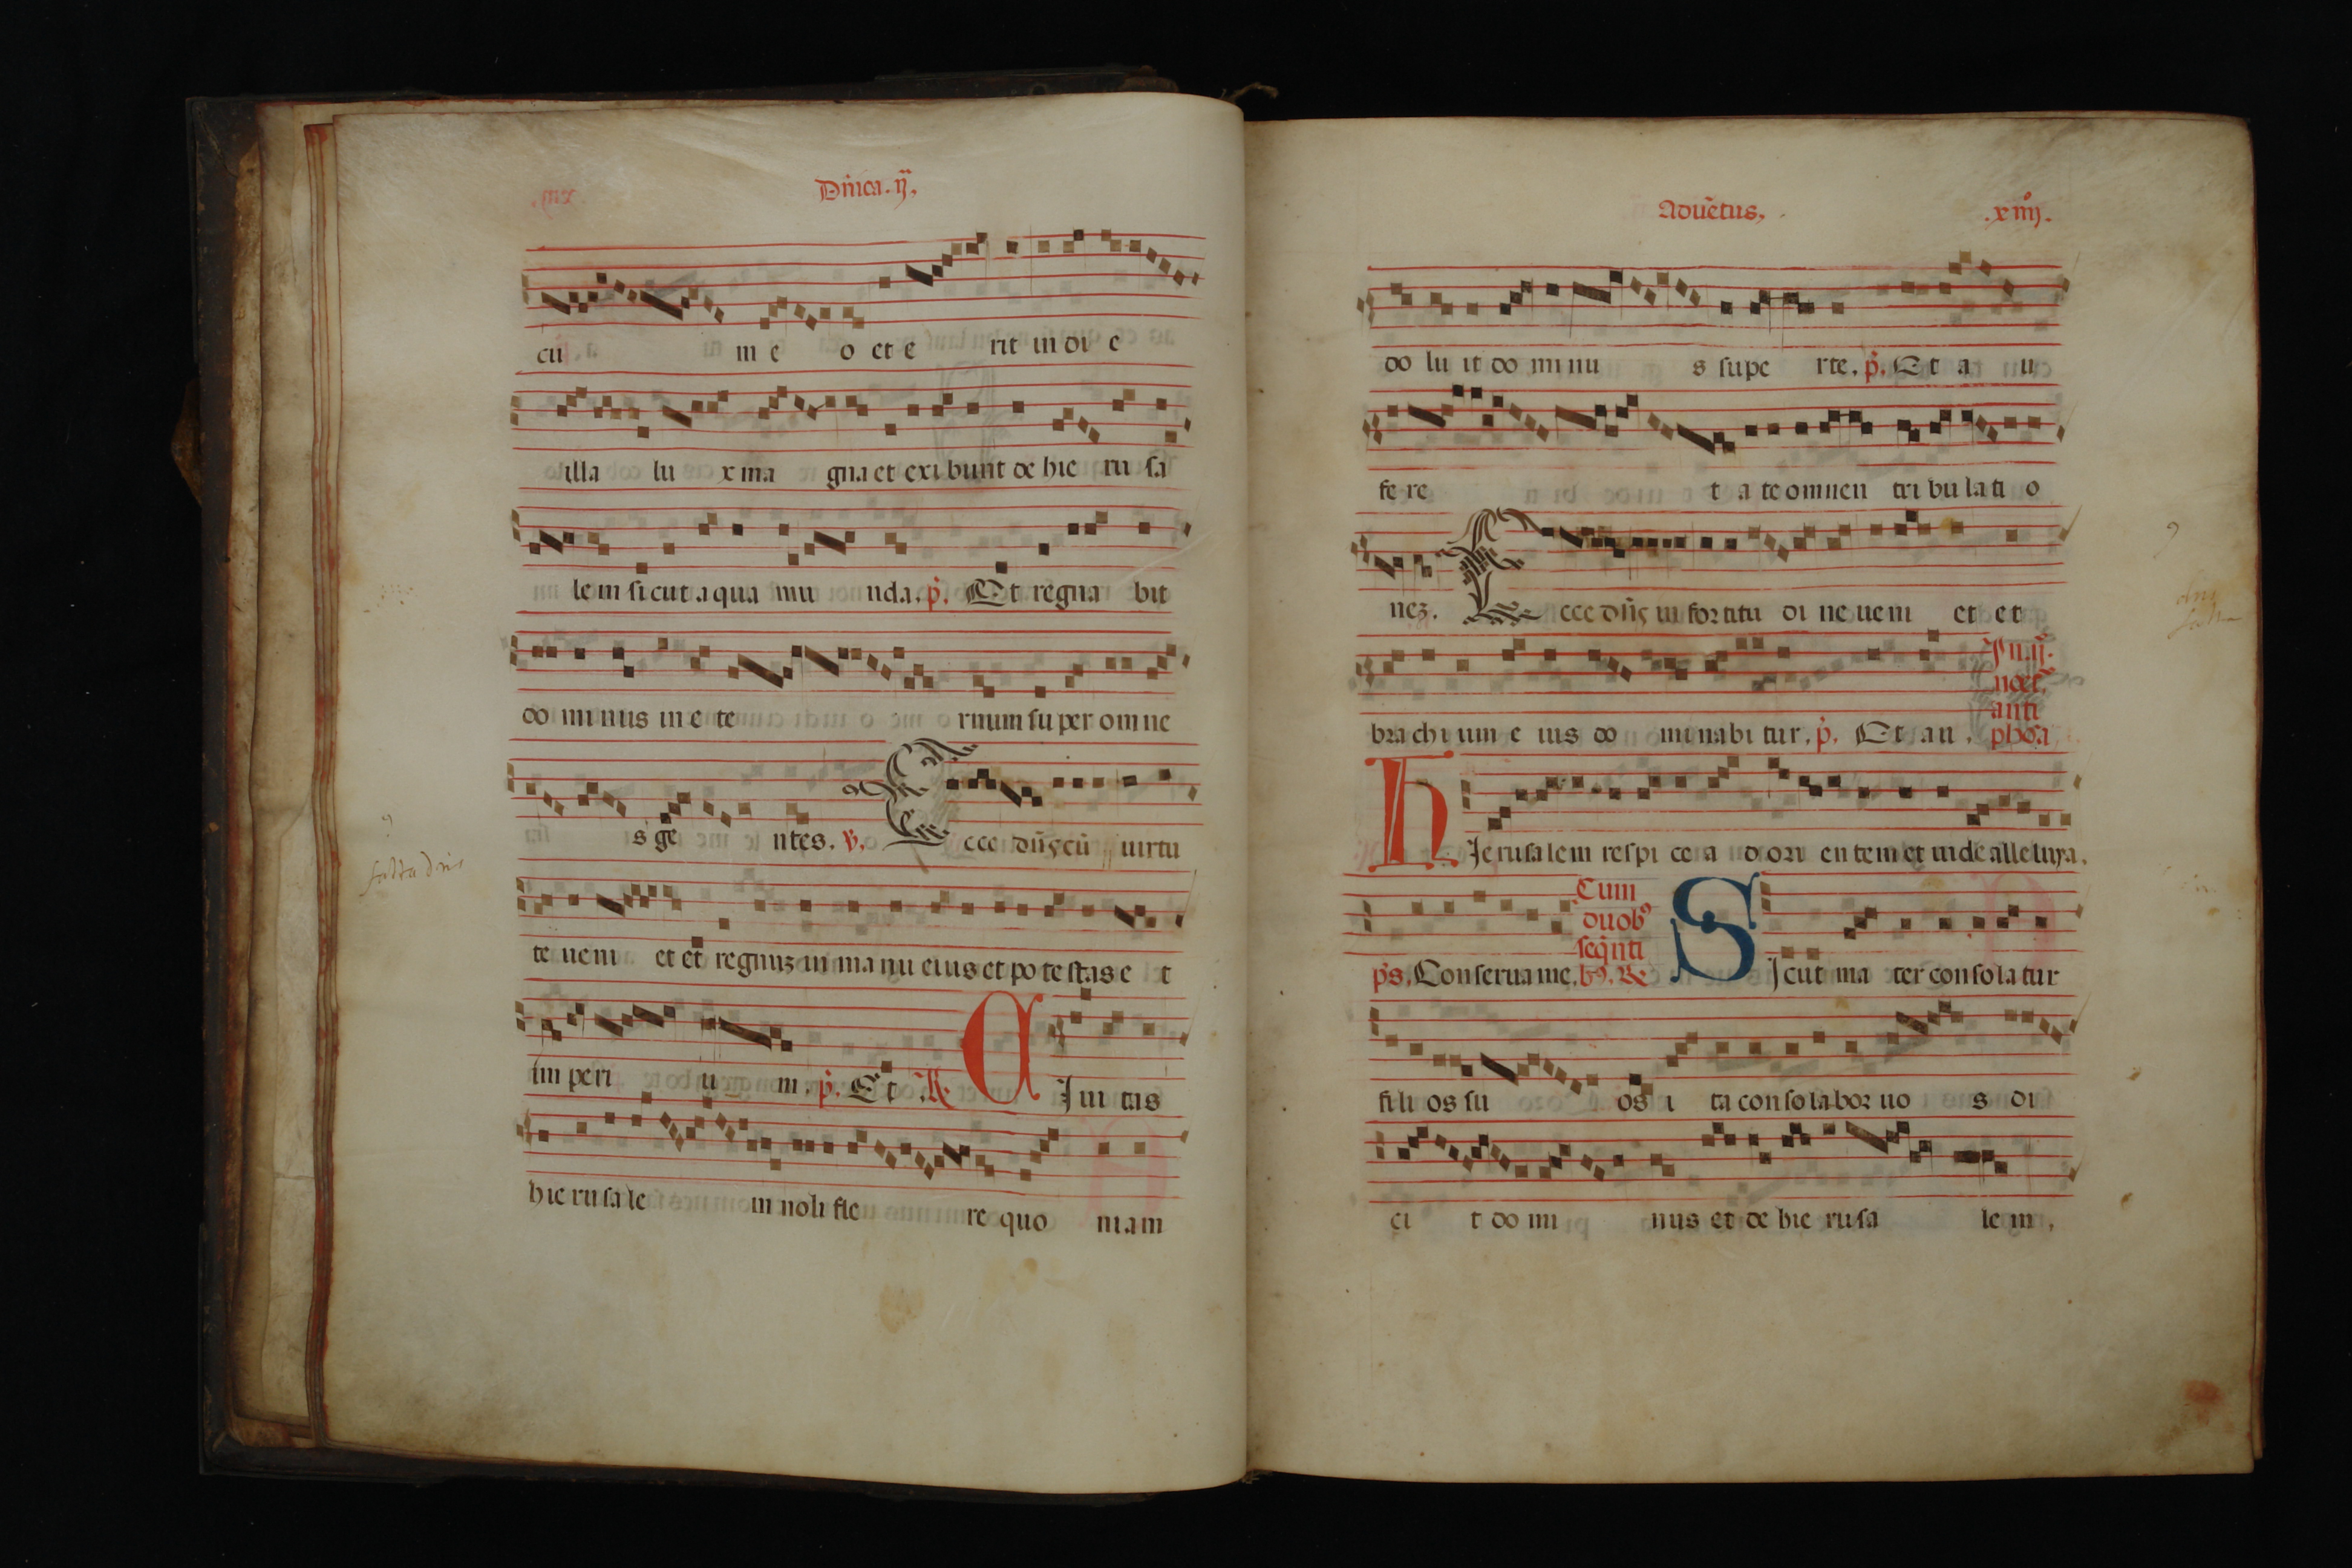 Dn̄ica. ij,
cu m e o et e rit in di e
illa lu x ma gna et exi bunt de hie ru sa
lem sicut aqua mu nda. p̄. Et regna bit
do minus in e te rnum super omne
s ge ntes. v̄. Ecce dn̄s cū uirtu
te ueni et et regnuz in manu eius et potestas e t
im peri u m. p̄. Et R. Ciui tas
hierusale m noli fle re quo niam
Aduētus, .xiiij.
do lu it do minu s supe rte. p̄. Et a u
fe re t a te omnen tri bu lati o
nez. Ecce dn̄s in fortitu di ne ueni et et
brachi um e ius do minabi tur. p̄. Et au.
In .ij. noct. anti phōa
Hierusalem respi ce a d ori entem et uide alleluya.
ps. Conserua me.
Cum duobꝰ seq̄nti bꝰ. R.
Sicut ma ter consolatur
fili os su os i ta consolabor uo s di
ci t do mi nus et de hie rusa le m.